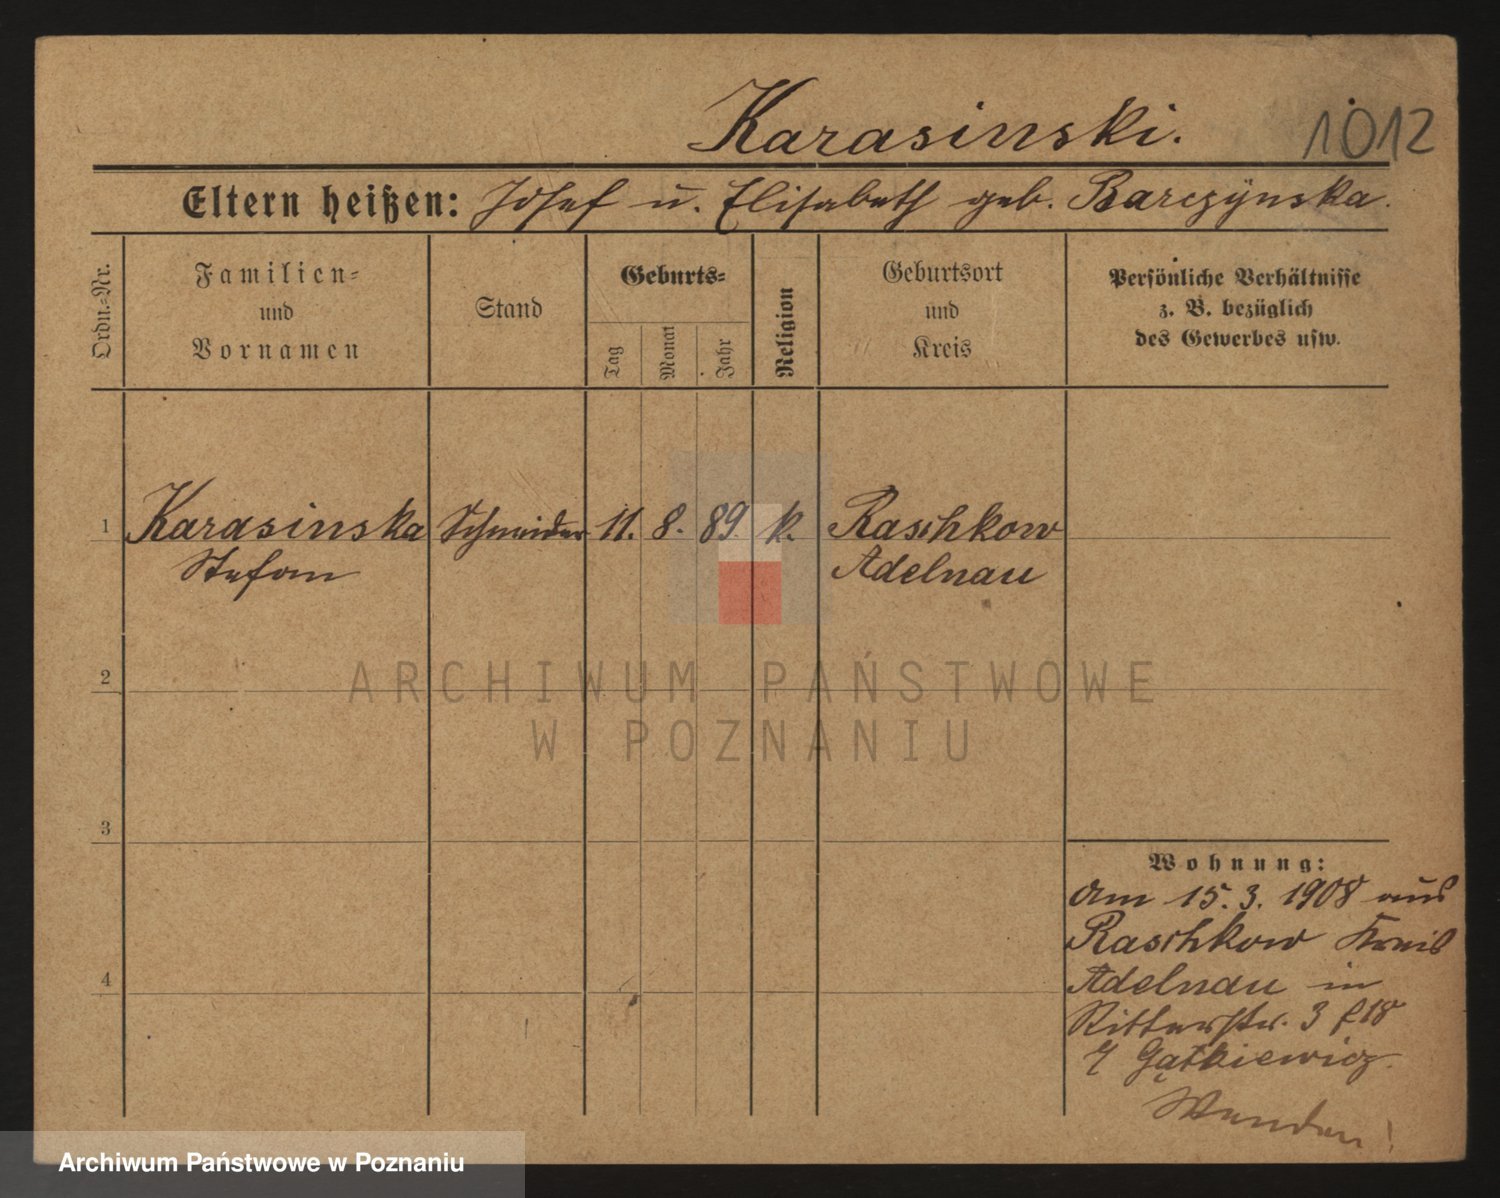 Karasinski.
1012
Eltern heißen: Josef u. Elisabeth geb. Barczÿnska.
Ordn.-Nr.
Familien-
und
Vornamen
Stand
Geburts-
Tag
Monat
Jahr
Religion
Geburtsort
und
Kreis
Persönliche Verhältnisse
z. B. bezüglich
des Gewerbes usw.
1 Karasinska Schneider 11. 8. 89. k. Raschkow
Stefan Adelnau
ARCHIWUM PAŃSTWOWE
W POZNANIU
2
3
4
Wohnung:
am 15. 3. 1908 aus
Raschkow Kreis
Adelnau in
Ritterstr. 3
Gątkiewicz.
Wenden!
Archiwum Państwowe w Poznaniu